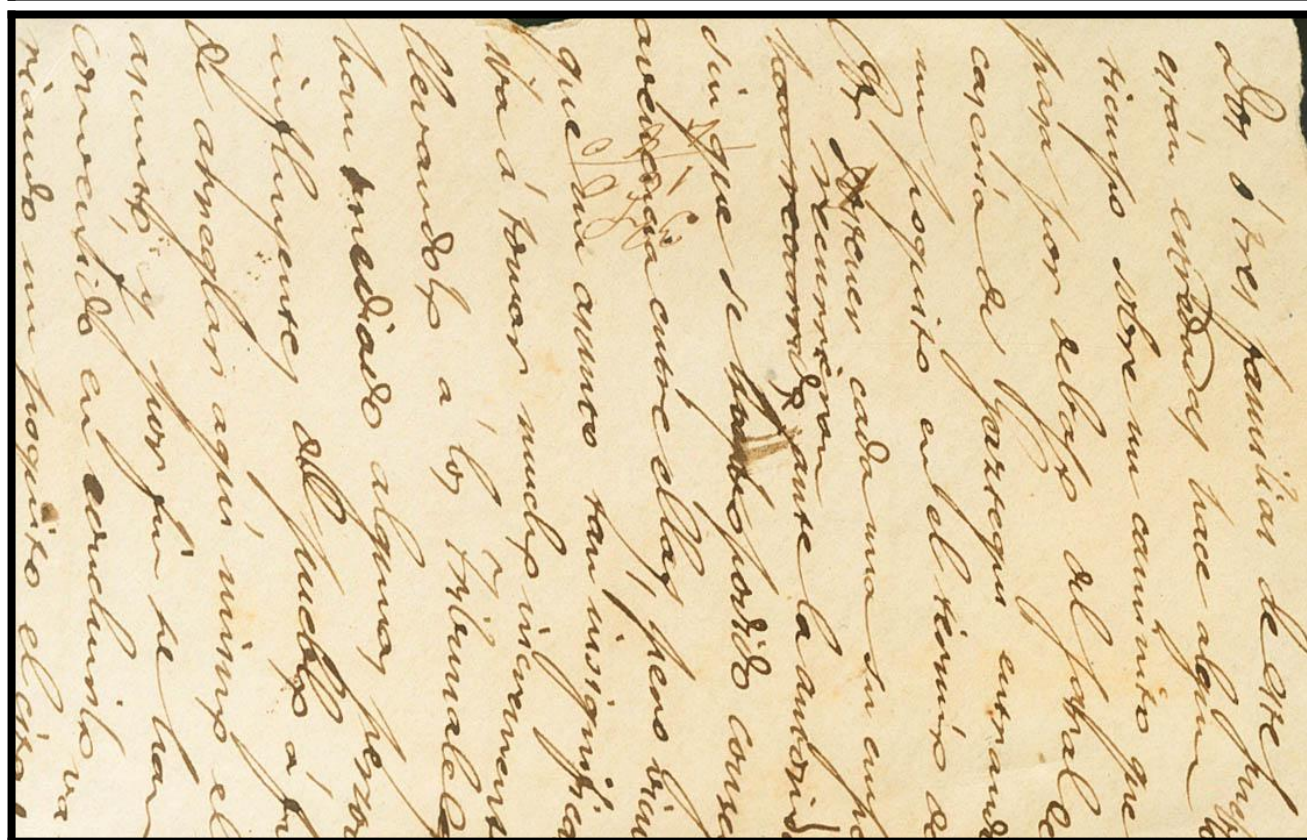 Las tres familias de este pueb
están enredadas hace algun
tiempo sobre un caminito que
pasa por debajo del jaral de
caseria de Gaztegui entrando
un poquito en el término de
cada una su camp
recurrieron
haan recurrido ante la autorid
sin que se haya podido conse
avenencia entre ellas, pero vien
que un asunto tan insignifica
iba á tomar mucho incremento
llevandolo a los tribunales
han mediado algunas person
influyentes del pueblo á fi
de arreglar aqui mismo el
asunto y por fin se han
convenido en concluirlo va
riando un poquito el citado